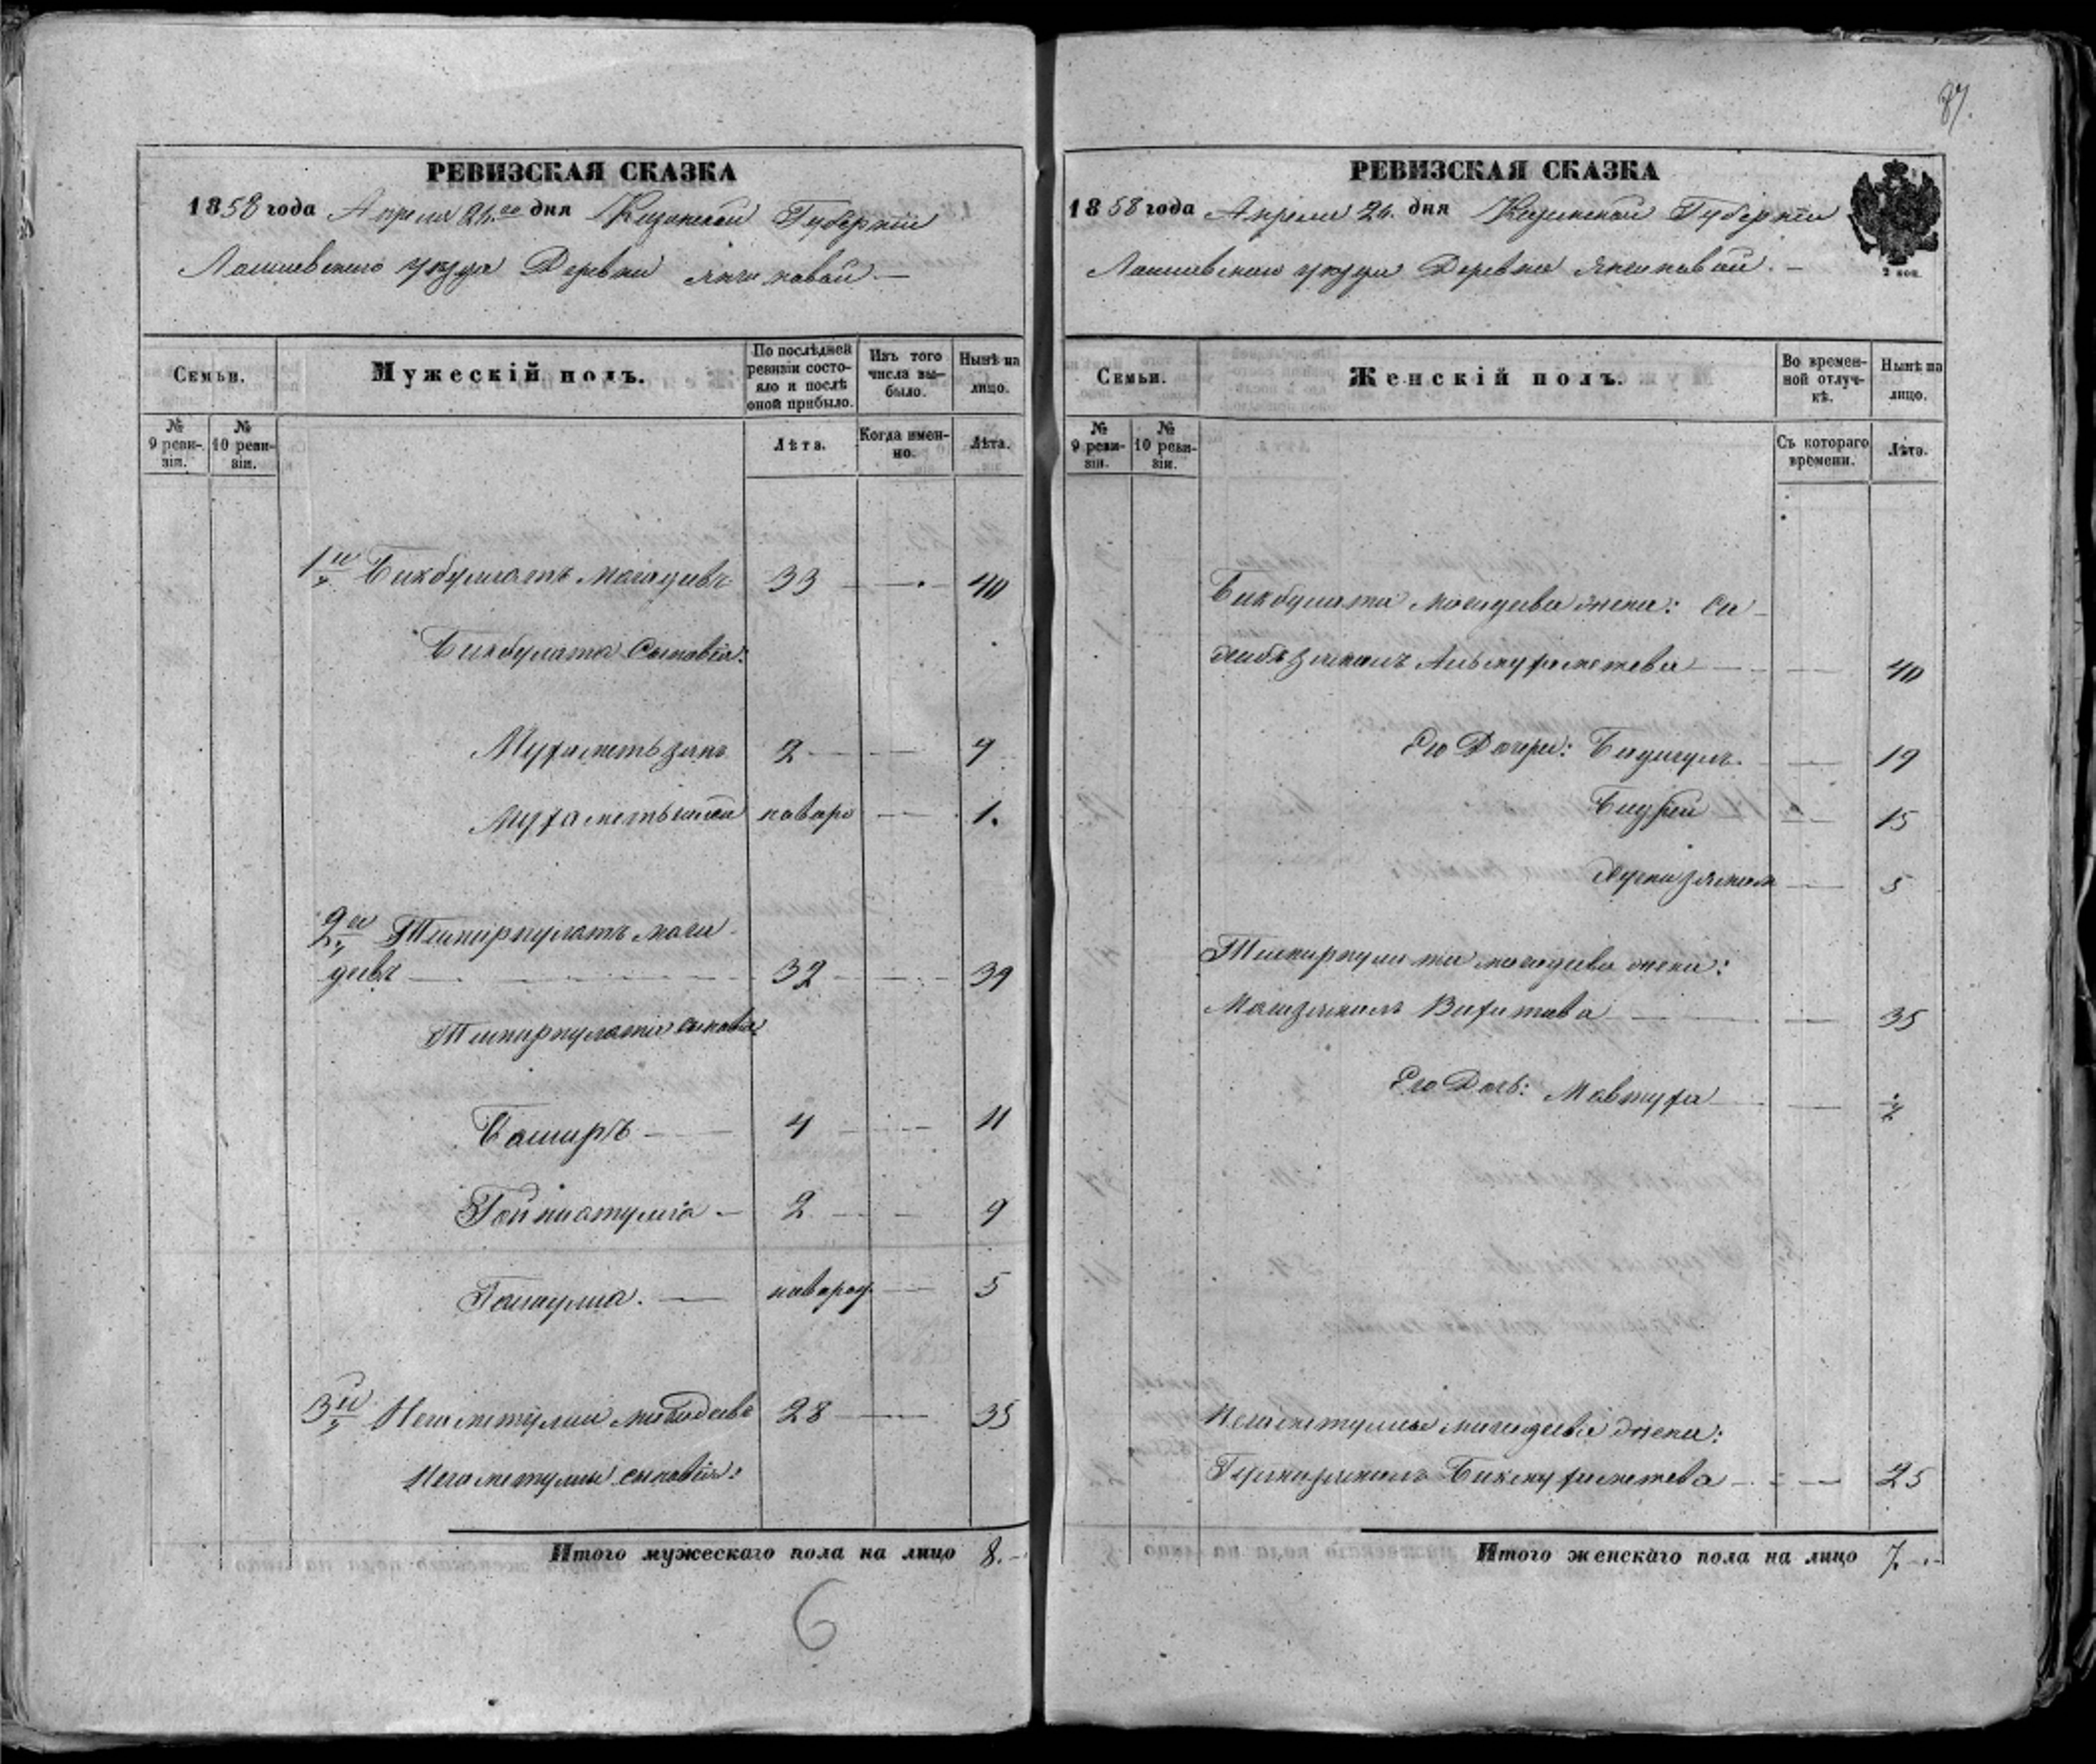 87.
РЕВИЗСКАЯ СКАЗКА
1858 года Апреля 26.го дня Казанской Губернiи
Лаишевскаго уѣзда Деревни Янчиковой.—
Семьи.
Мужескiй полъ.
По послѣдней ревизiи состояло и послѣ оной прибыло.
Изъ того числа выбыло.
Нынѣ на лицо.
№ 9 ревизiи.
№ 10 ревизiи.
Лѣта.
Когда именно.
Лѣта.
1й Бикбулатъ Магадѣевъ 33 — 40
Бикбулата Сыновiя:
Мухаметьзянъ 2 — 9
Мухаметьшай наваро — 1.
2й Темирпулатъ Мага-
дѣевъ — 32 — 39
Темирпулата сыновiя
Баширъ — 4 — 11
Гайниатулла — 2 — 9
навароу — 5
3й Негаметулла 28 — 35
Негаметуллы сыновiя:
Итого мужескаго пола на лицо 8.—
6
РЕВИЗСКАЯ СКАЗКА
1858 года Апреля 26. дня Казанской Губернiи
Лаишевскаго уѣзда Деревни Янчиковой.—
2 коп.
Семьи.
Женскiй полъ.
Во временной отлучкѣ.
Нынѣ на лицо.
№ 9 ревизiи.
№ 10 ревизiи.
Съ котораго времени.
Лѣта.
Бикбулата Магадѣева жена: Са-
Альмухаметева — 40
Его Дочери: 19
15
5
Темирпулата Магадѣева жена:
Вахитова — 35
Его Дочь: Мавтуха
Негаметуллы Магадѣева жена:
Бикмухаметева — 25
Итого женскаго пола на лицо 7.—